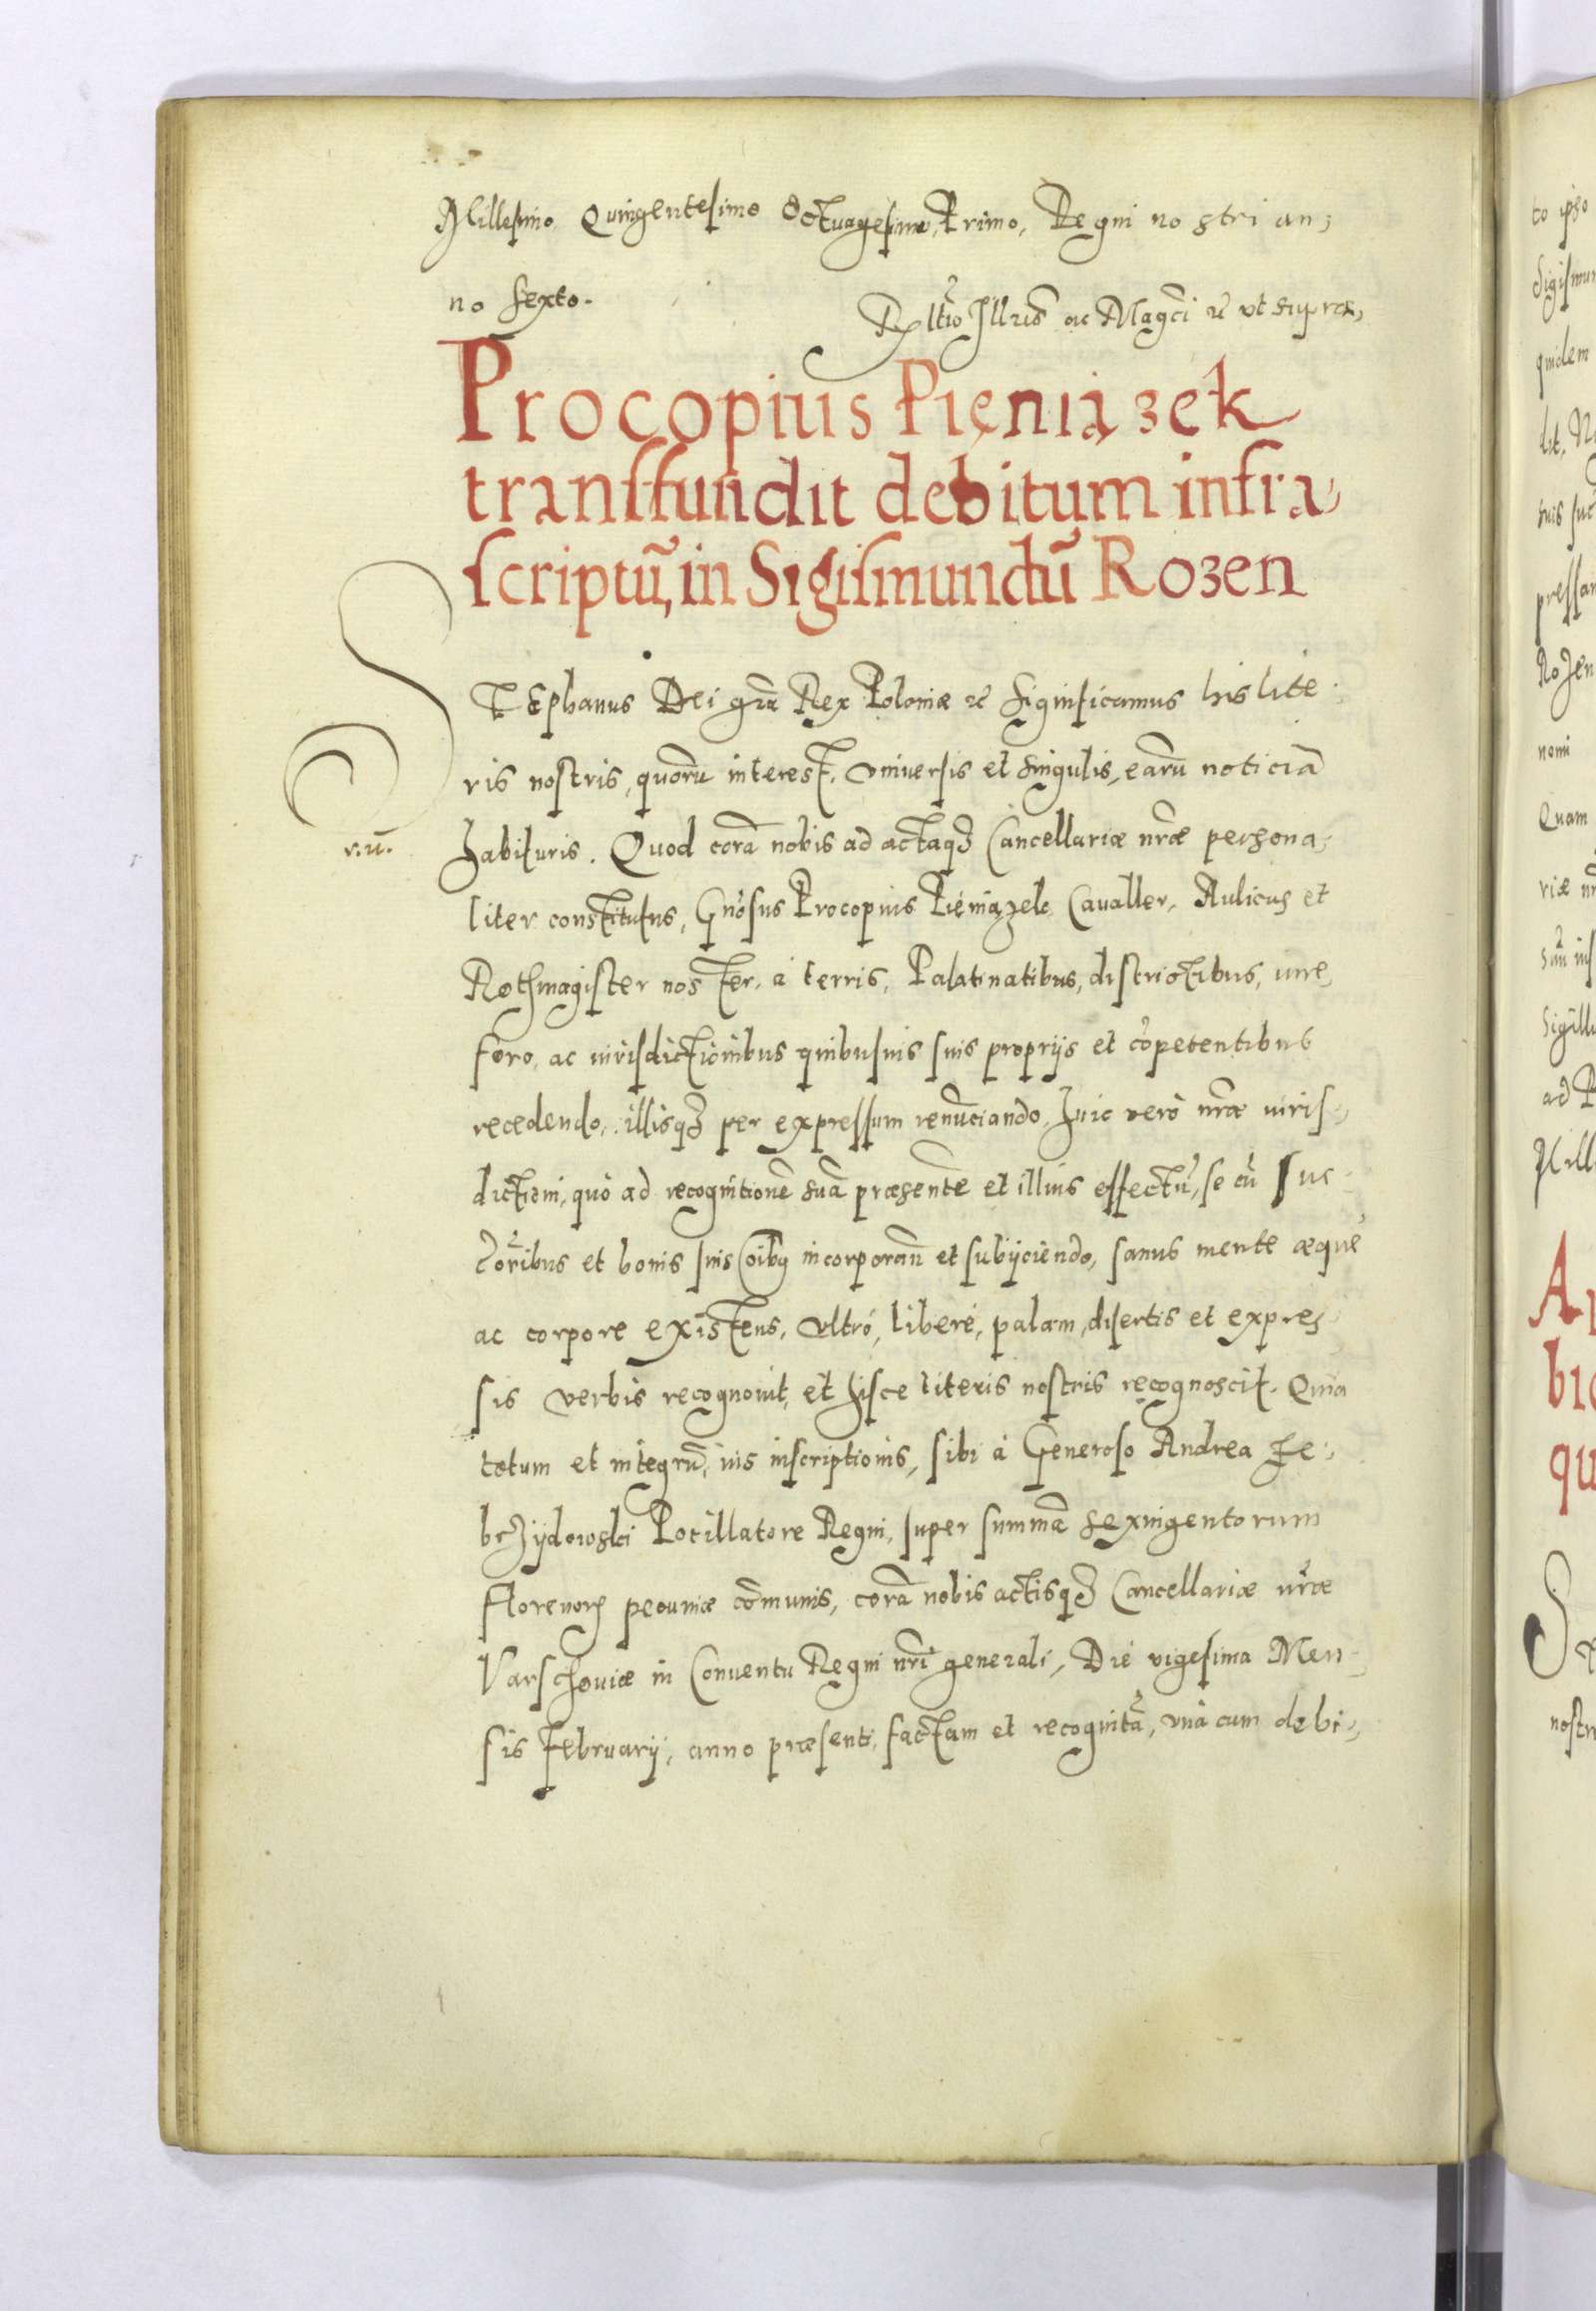 Millesimo Quingentesimo Octuagesimo, Primo, Regni nostri an,
no sexto.
Rłtio Illris ac Magci &c ut supra,
Procopius Pieniążek
transfundit debitum infra,
scriptū, in Sigismundū Rozen
STEphanus Dei gra Rex Poloniæ &c Significamus his lite,
ris nostris, quorū interest, vniuersis et singulis, earū noticiā
habituris. Quod corā nobis ad actaq3 Cancellariæ nræ persona,
r. u.
liter constitutus, Gnosus Procopius Pieniązek Cavaller, Aulicus et
Rothmagister noster, à terris, Palatinatibus, districtibus, iure,
foro, ac iurisdictionibus quibusuis suis proprijs et cōpetentibus
recedendo, illisq3 per expressum renūciando, huic verò nræ iuris,
dictioni, quò ad recognitionē suā præsentē et illius effectū, se cū suc
coribus et bonis suis oibus incorporañ et subijciendo, sanus mente æquè
ac corpore existens, vltrò, liberè, palam, disertis et expres
sis verbis recognouit, et hisce literis nostris recognoscit. Quia
totum et integrū, ius inscriptionis, sibi à Generoso Andrea Ze,
brzÿdowski Pocillatore Regni, super summā sexingentorum
florenorꝝ pecuniæ cōmunis, corā nobis actisq3 Cancellariæ nræ
Varschouiæ in Conuentu Regni nri generali, Die vigesima Men
sis Februarij, anno præsenti, factam et recognitā, vnà cum debi,